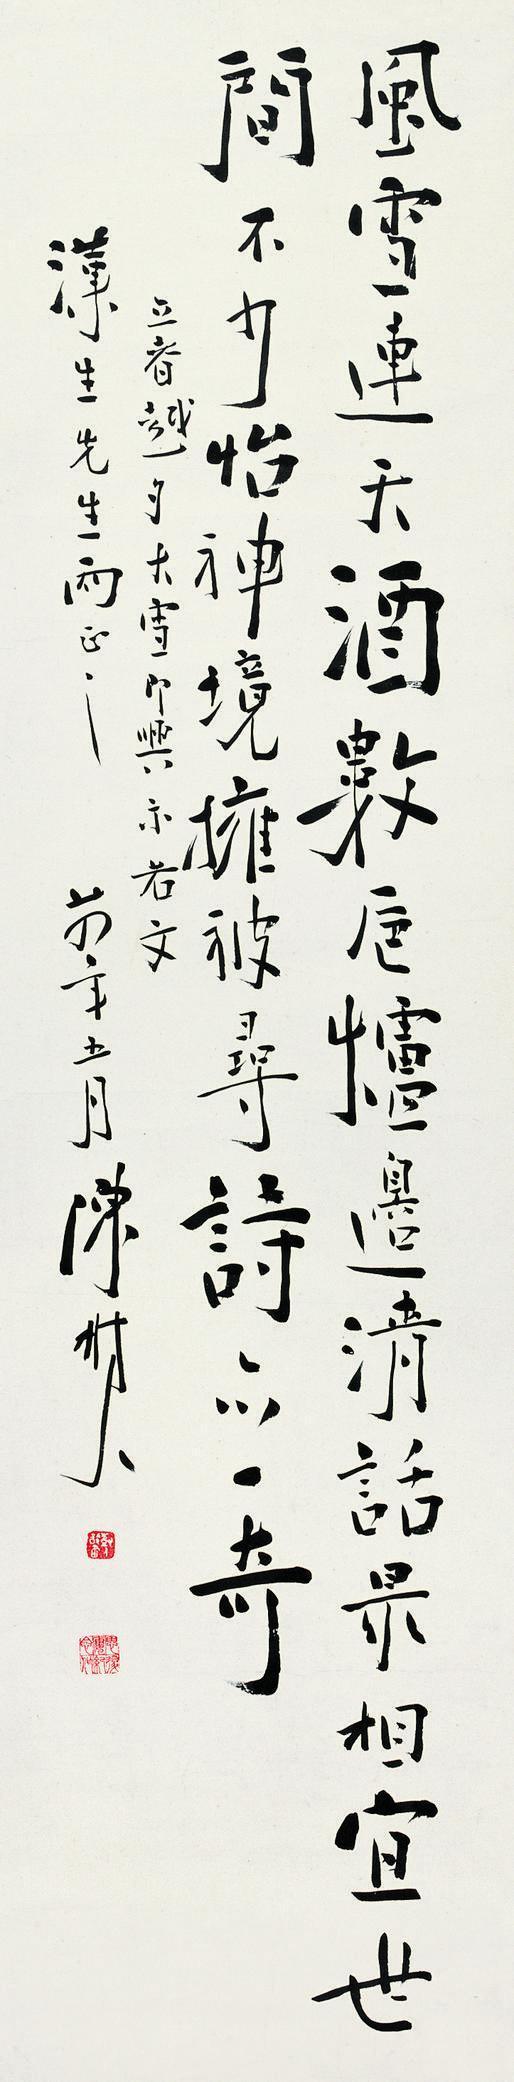 風雪連天酒數卮爐邊清話最相宜世
間不少怡神境擁被尋詩亦一奇
立春越夕大雪即興示若文
漢生先生兩正之 前年五月 陳樹人